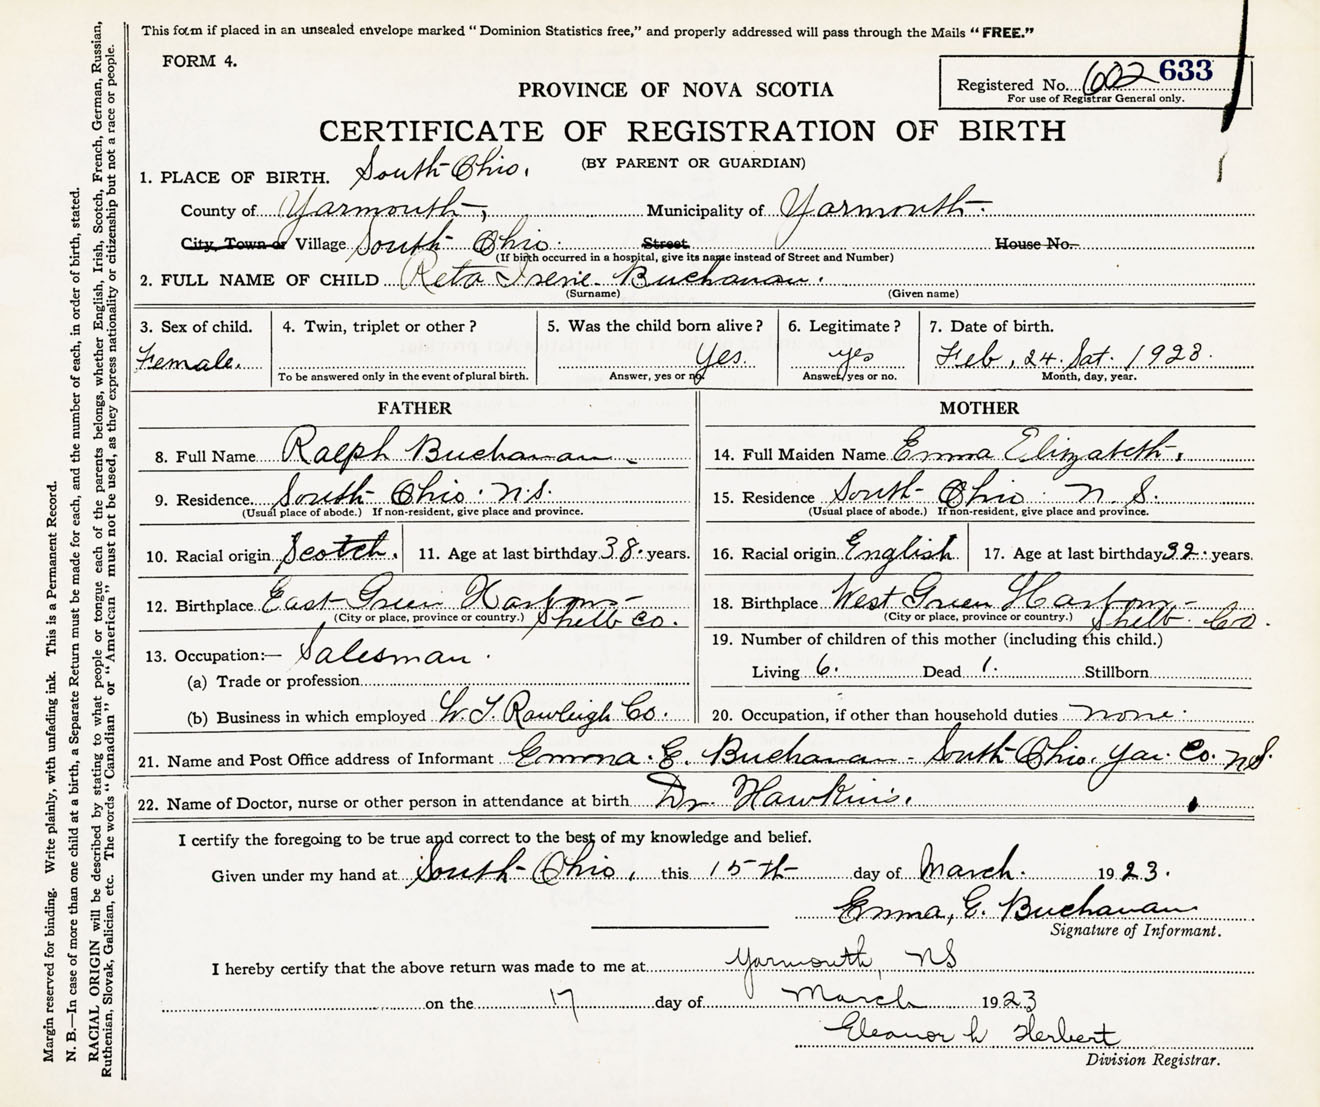 This form if placed in an unsealed envelope marked "Dominion Statistics free," and properly addressed will pass through the Mails "FREE."
FORM 4.
Registered No. 602 633
For use of Registrar General only.
PROVINCE OF NOVA SCOTIA
CERTIFICATE OF REGISTRATION OF BIRTH
(BY PARENT OR GUARDIAN)
1. PLACE OF BIRTH. South Ohio.
County of Yarmouth, Municipality of Yarmouth.
City, Town or Village South Ohio. Street House No.
(If birth occurred in a hospital, give its name instead of Street and Number)
2. FULL NAME OF CHILD Reta Irene Buchanan.
(Surname) (Given name)
3. Sex of child. Female.
4. Twin, triplet or other?
To be answered only in the event of plural birth.
5. Was the child born alive? Yes.
Answer, yes or no.
6. Legitimate? yes
Answer, yes or no.
7. Date of birth.
Feb, 24. Sat. 1923.
Month, day, year.
FATHER
8. Full Name Ralph Buchanan
9. Residence South Ohio. N.S.
(Usual place of abode.) If non-resident, give place and province.
10. Racial origin Scotch. 11. Age at last birthday 38. years.
12. Birthplace East Green Harbour Shelb Co.
(City or place, province or country.)
13. Occupation:— Salesman.
(a) Trade or profession
(b) Business in which employed W. T. Rawleigh Co.
MOTHER
14. Full Maiden Name Emma Elizabeth.
15. Residence South Ohio. N. S.
(Usual place of abode.) If non-resident, give place and province.
16. Racial origin English 17. Age at last birthday 32. years.
18. Birthplace West Green Harbour Shelb. Co.
(City or place, province or country.)
19. Number of children of this mother (including this child.)
Living 6. Dead 1. Stillborn
20. Occupation, if other than household duties none.
21. Name and Post Office address of Informant Emma. E. Buchanan - South Ohio. Yar. Co. N.S.
22. Name of Doctor, nurse or other person in attendance at birth Dr. Hawkins.
I certify the foregoing to be true and correct to the best of my knowledge and belief.
Given under my hand at South Ohio, this 15th day of March. 1923.
Emma, E. Buchanan
Signature of Informant.
I hereby certify that the above return was made to me at Yarmouth, NS
on the 17 day of March 1923
Eleanor L Herbert
Division Registrar.
Margin reserved for binding. Write plainly, with unfading ink. This is a Permanent Record.
N. B.—In case of more than one child at a birth, a Separate Return must be made for each, and the number of each, in order of birth, stated.
RACIAL ORIGIN will be described by stating to what people or tongue each of the parents belongs, whether English, Irish, Scotch, French, German, Russian,
Ruthenian, Slovak, Galician, etc. The words "Canadian" or "American" must not be used, as they express nationality or citizenship but not a race or people.